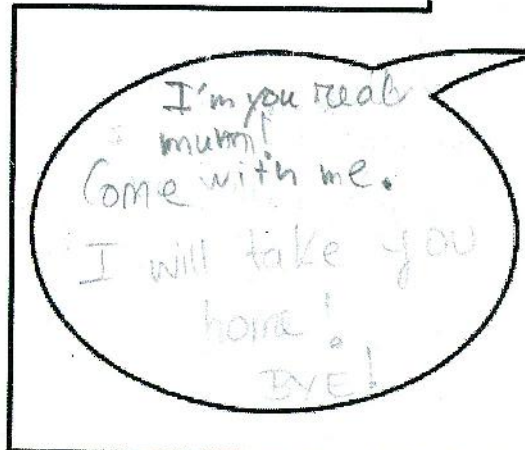 I'm you real
mum!
Come with me.
I will take you
home!
BYE!